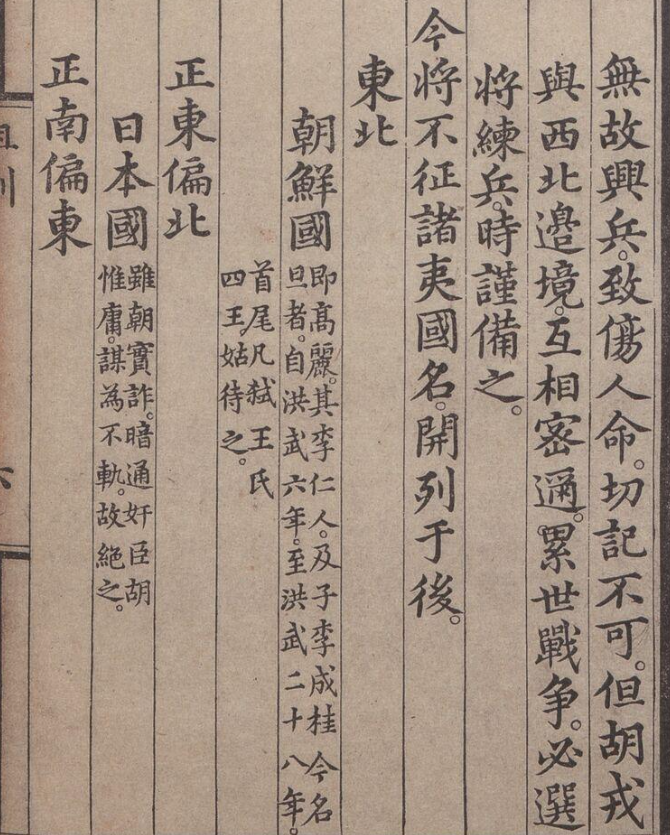 無故興兵。致傷人命。切記不可。但胡戎
與西北邉境。互相宻邇。累世戰争。必選
將練兵。時謹備之。
今將不征諸夷國名。開列于後。
東北
朝鮮國
即高麗。其李仁人。及子李成桂今名
旦者。自洪武六年。至洪武二十八年。
首尾凡弑王氏
四王。姑待之。
正東偏北
日本國
雖朝實詐。暗通奸臣胡
惟庸。謀為不軌。故絶之。
正南偏東
祖訓
六